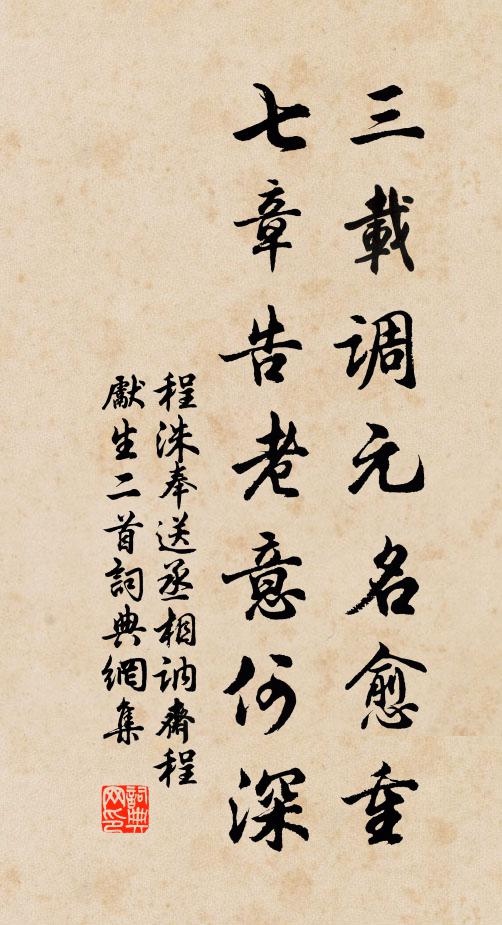 三載調元名愈重
七章告老意何深
程洙奉送丞相訥齋程
獻生二首詞典網集
詞典網印